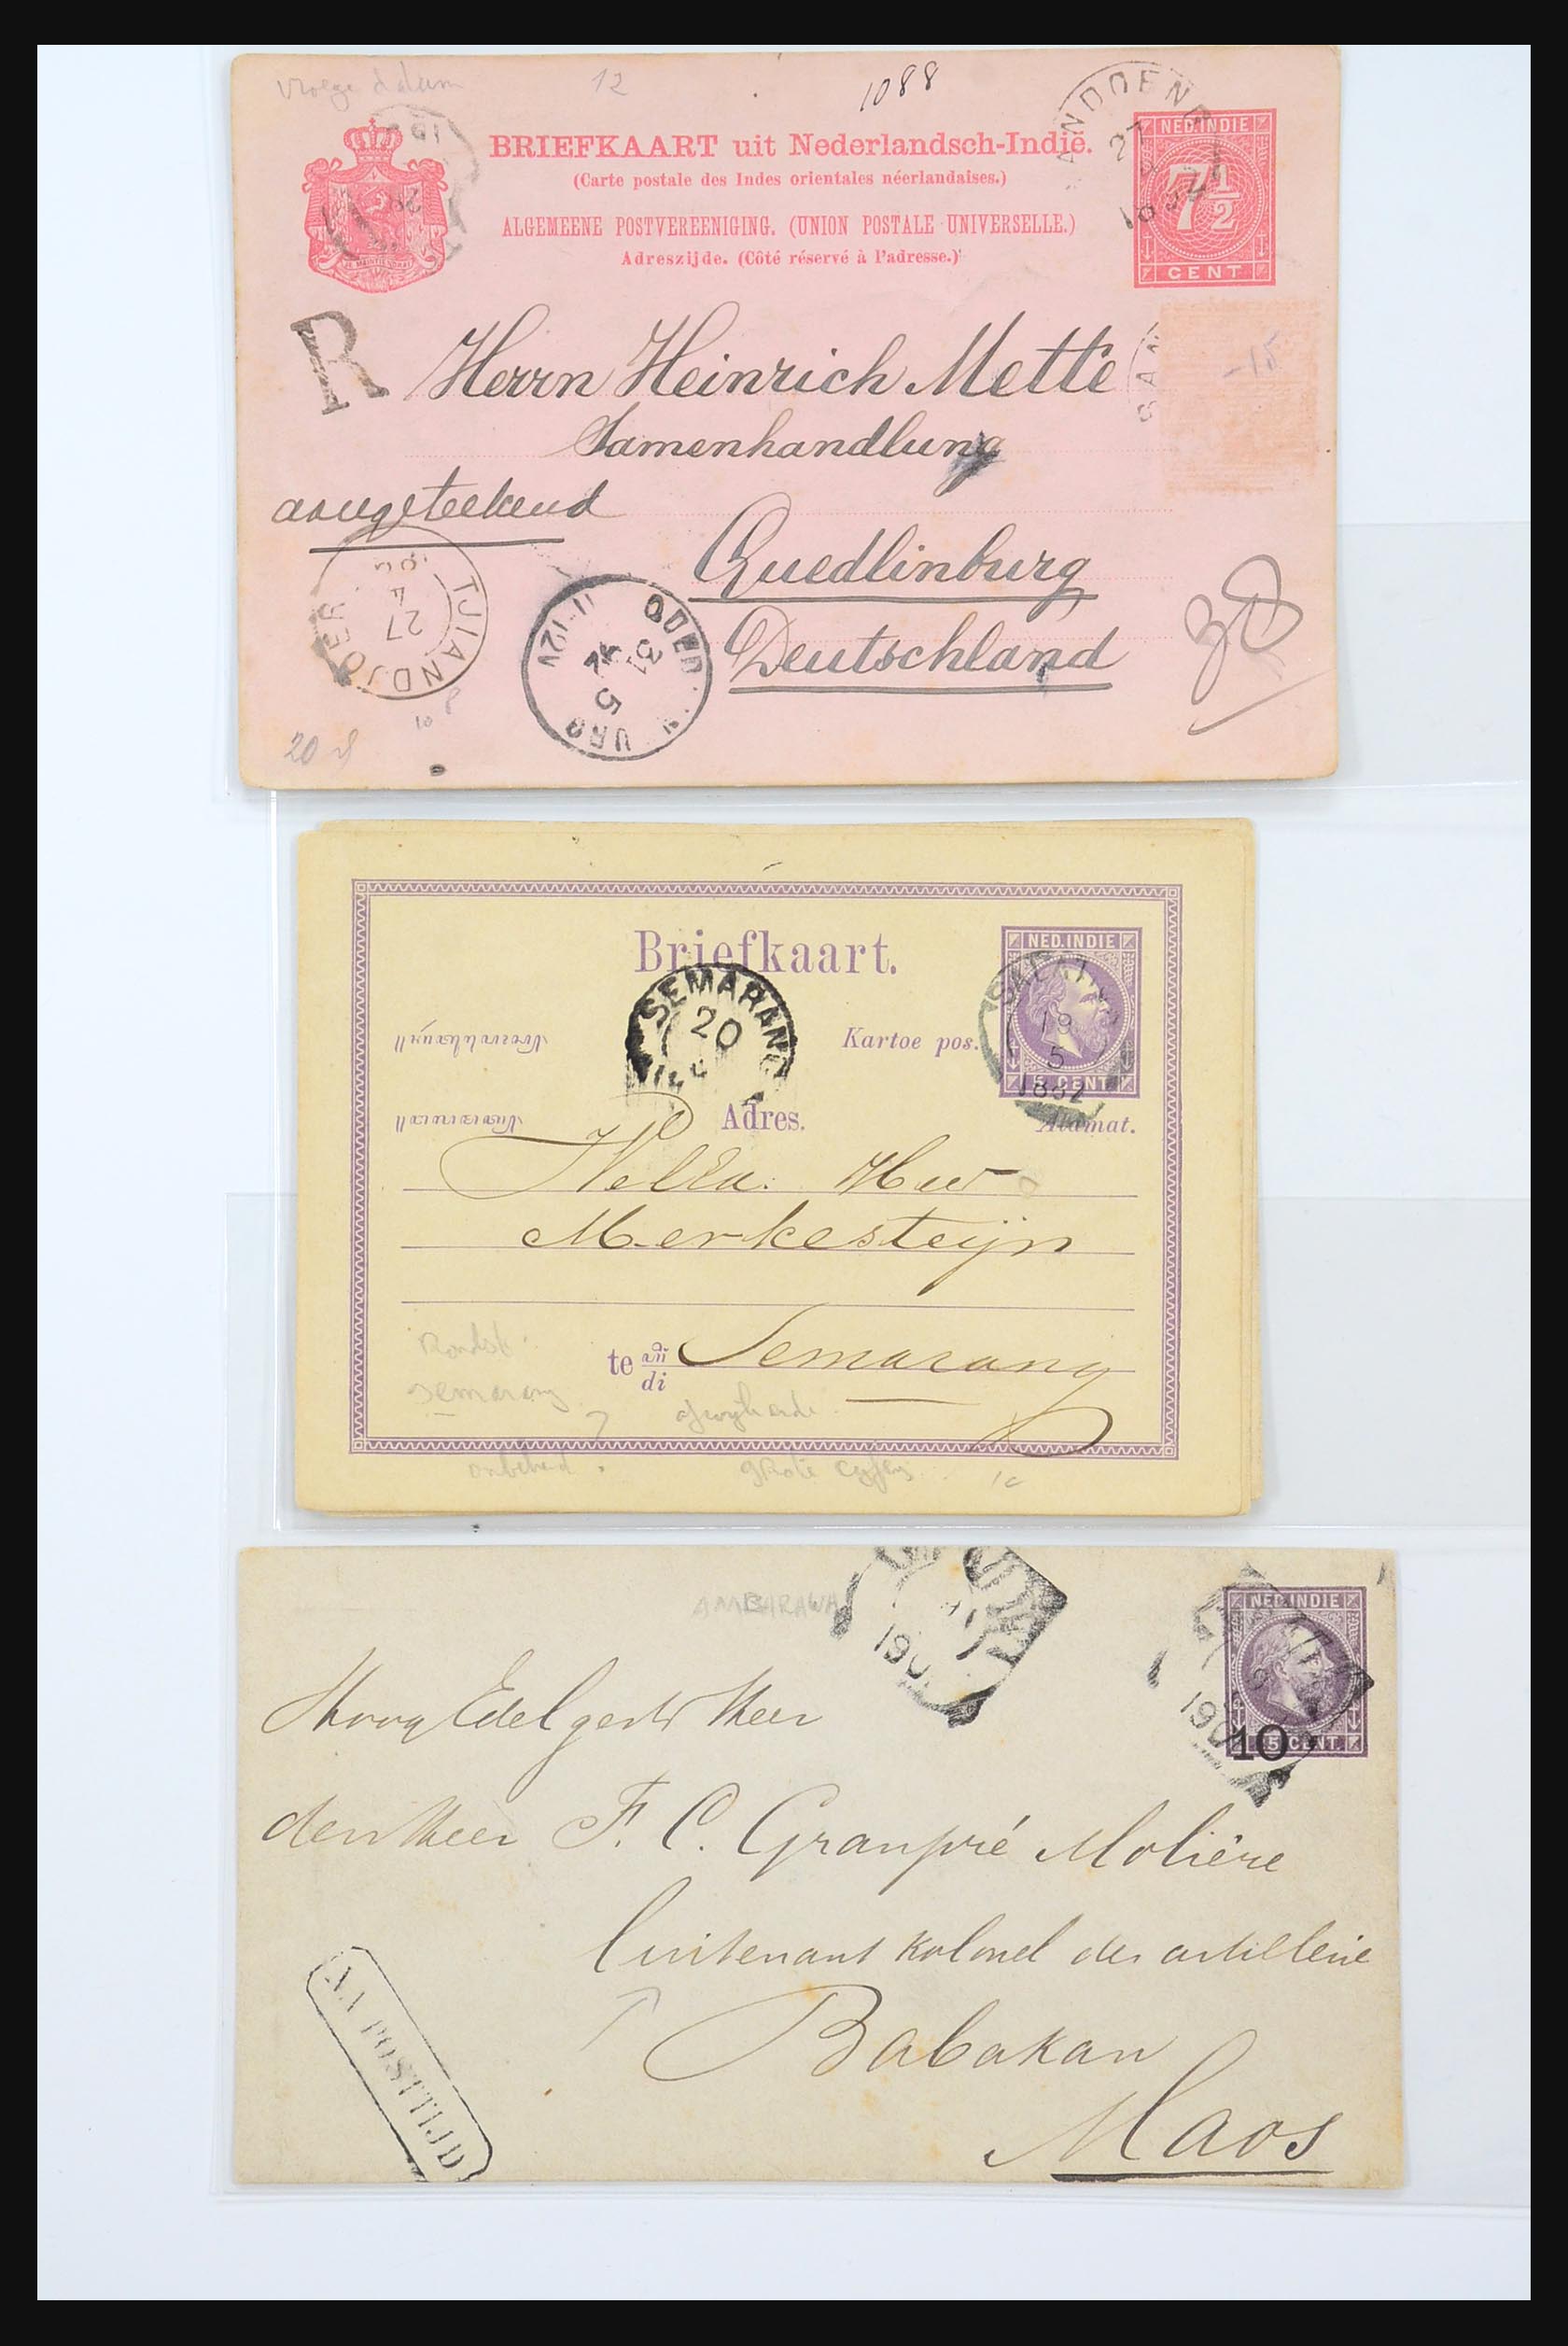 vroege datum
12
1088
BRIEFKAART uit Nederlandsch-Indië.
(Carte postale des Indes orientales néerlandaises.)
ALGEMEENE POSTVEREENIGING. (UNION POSTALE UNIVERSELLE.)
Adreszijde. (Côté réservé à l'adresse.)
NED. INDIE
7½
CENT
27
R
Herrn Heinrich Mette
Samenhandlung
-15
aangeteekend
Quedlinburg
Deutschland
TJIANDJOER
27
4
31
5
11-12V
20
Briefkaart.
NED. INDIE
5 CENT
SEMARANG
20
Kartoe pos.
19
5
1882
Adres.
Alamat.
Mevrouw
Merkesteijn
te di Semarang
Rondst.
Semarang
grote cijfers
AMBARAWA
190
NED. INDIE
10
190
Hoog Edelgestr Heer
den Heer F. C. Granpré Molière
luitenant kolonel der artillerie
Babakan
Maos
NA POSTTIJD